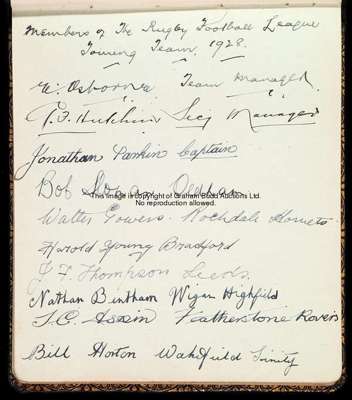 Members of The Rugby Football League
Touring Team, 1928.
E. Osborne Team Manager.
G. F. Hutchin Secy Manager
Jonathan Parkin Captain
Bob Sloman Oldham
This image is copyright of Graham Budd Auctions Ltd.
No reproduction allowed.
Walter Gowers. Rochdale Hornets.
Harold Young Bradford
J F Thompson Leeds.
Nathan Bentham Wigan Highfield
T. E. Askin Featherstone Rovers
Bill Horton Wakefield Trinity